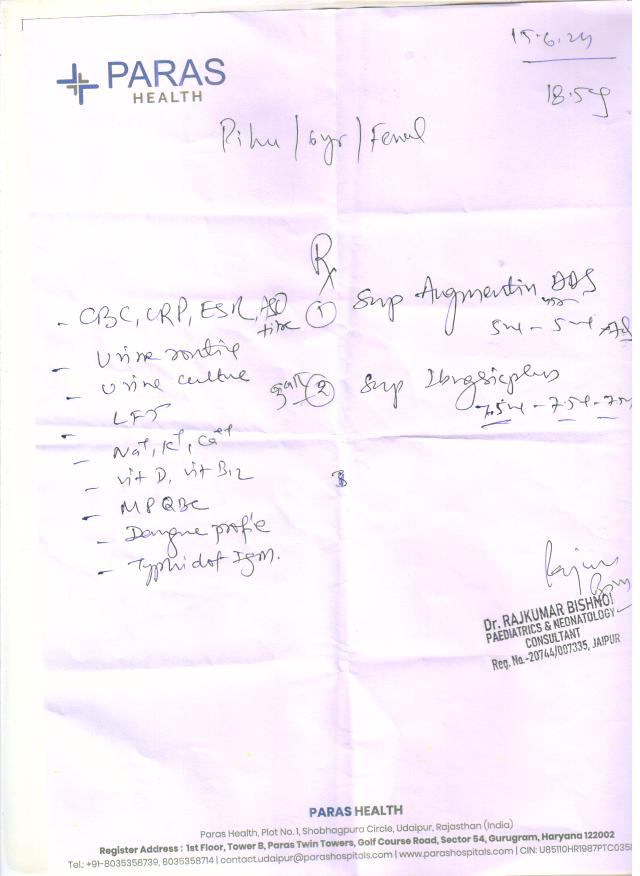 PARAS
HEALTH
15.6.24
18.5 kg
Pihu / 6yr / Femal
Rx
- CBC, CRP, ESR, ASO titre
① Syp Augmentin DDS
5ml - 5ml
- Urine routine
- Urine culture
② Syp Ibugesic plus
7.5ml - 7.5ml - 7.5ml
- LFT
- Na+, K+, Ca++
- vit D, vit B12
- MPQBC
- Dengue profile
- Typhidot IgM.
Dr. RAJKUMAR BISHNOI
PAEDIATRICS & NEONATOLOGY
CONSULTANT
Reg. No.-20744/007335, JAIPUR
PARAS HEALTH
Paras Health, Plot No. 1, Shobhagpura Circle, Udaipur, Rajasthan (India)
Register Address : 1st Floor, Tower B, Paras Twin Towers, Golf Course Road, Sector 54, Gurugram, Haryana 122002
Tel.: +91-8035358739, 8035358714 | contact.udaipur@parashospitals.com | www.parashospitals.com | CIN: U85110HR1987PTC035